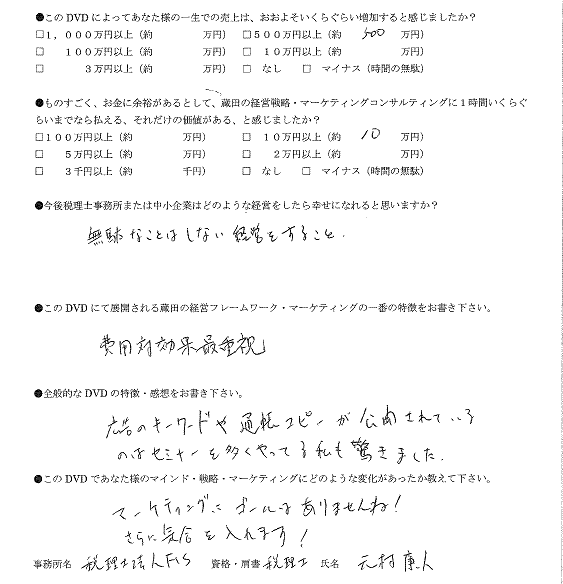 ●このDVDによってあなた様の一生での売上は、おおよそいくらぐらい増加すると感じましたか？
□1，000万円以上（約　　　万円）　□500万円以上（約　500　万円）
□　100万円以上（約　　　万円）　□　10万円以上（約　　　万円）
□　3万円以上（約　　　万円）　□　なし　□　マイナス（時間の無駄）
●ものすごく、お金に余裕があるとして、蔵田の経営戦略・マーケティングコンサルティングに1時間いくらぐ
らいまでなら払える、それだけの価値がある、と感じましたか？
□100万円以上（約　　　万円）　□　10万円以上（約　10　万円）
□　5万円以上（約　　　万円）　□　2万円以上（約　　　万円）
□　3千円以上（約　　　千円）　□　なし　□　マイナス（時間の無駄）
●今後税理士事務所または中小企業はどのような経営をしたら幸せになれると思いますか？
無駄なことはしない経営をすること.
●このDVDにて展開される蔵田の経営フレームワーク・マーケティングの一番の特徴をお書き下さい。
費用対効果最重視
●全般的なDVDの特徴・感想をお書き下さい。
広告のキーワードや通帳コピーが公開されている
のはセミナーを多くやってる私も驚きました.
●このDVDであなた様のマインド・戦略・マーケティングにどのような変化があったか教えて下さい。
マーケティングにゴールはありませんね！
さらに気合を入れます！
事務所名　税理士法人FIS　資格・肩書　税理士　氏名　元村康人